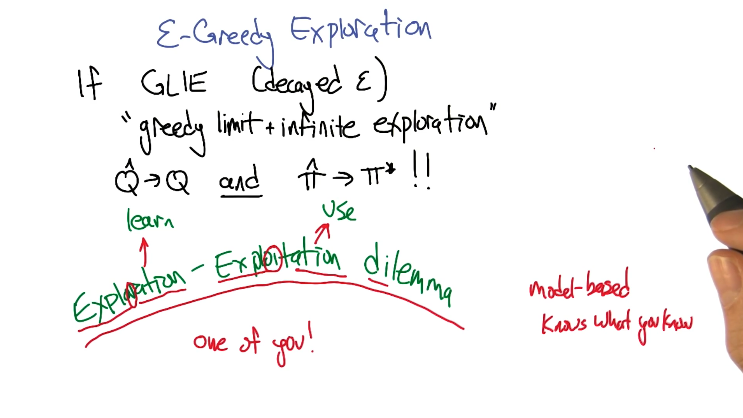 ε-Greedy Exploration
If GLIE (decayed ε)
"greedy limit + infinite exploration"
Q̂ → Q and π̂ → π* !!
learn
use
Exploration - Exploitation dilemma
one of you!
model-based
knows what you know